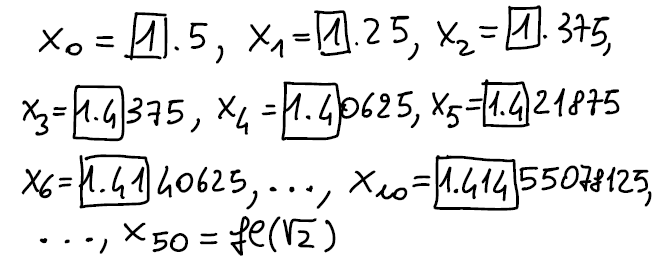 x₀ = 1.5, x₁ = 1.25, x₂ = 1.375,
x₃ = 1.4375, x₄ = 1.40625, x₅ = 1.421875
x₆ = 1.4140625, ..., x₁₀ = 1.41455078125,
..., x₅₀ = fl(√2)